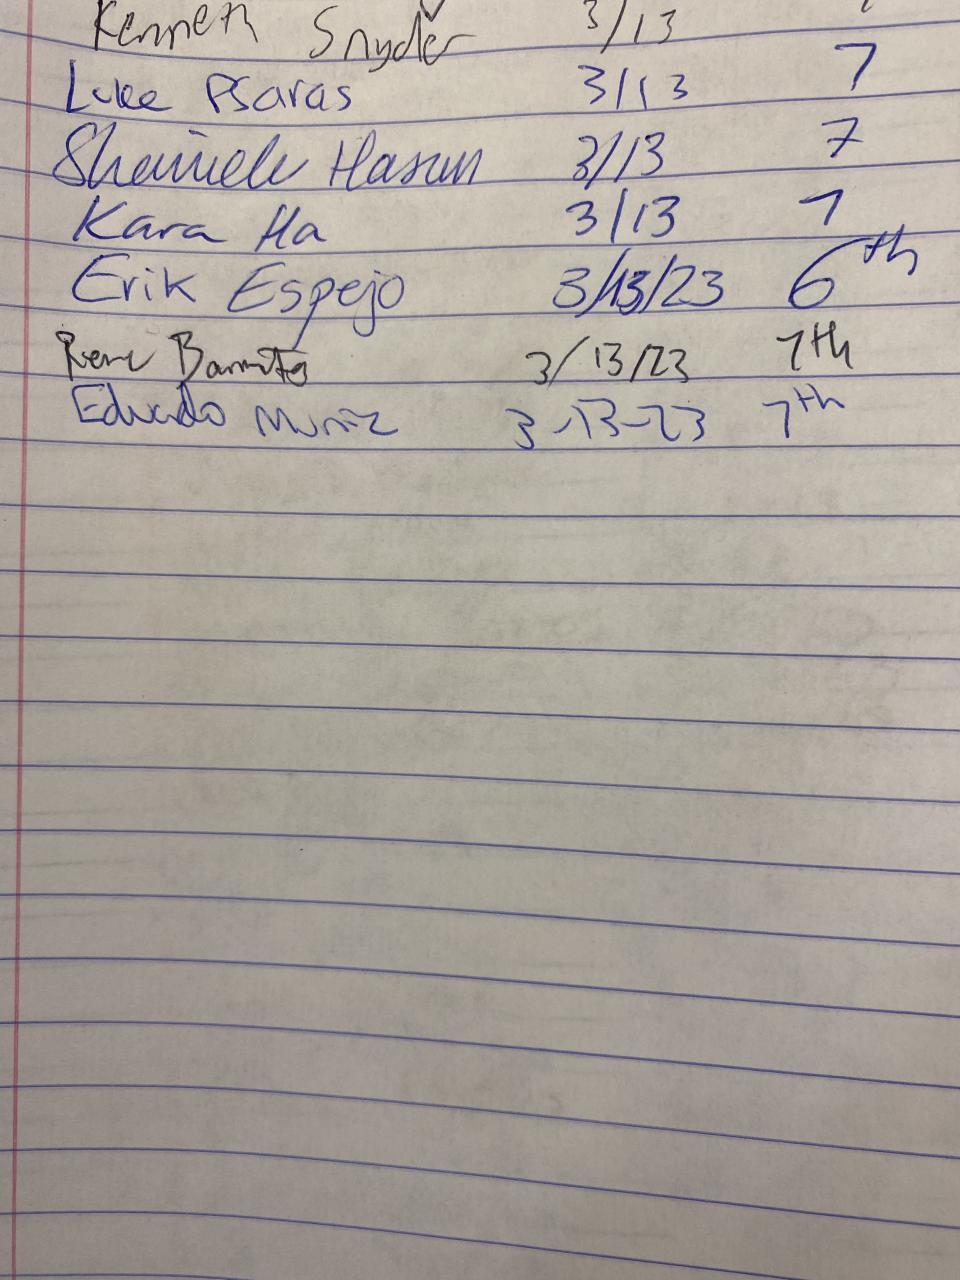 Kenneth Snyder 3/13
Luke Psaras 3/13 7
Hasan 3/13 7
Kara Ha 3/13 7
Erik Espejo 3/13/23 6th
Rene 3/13/23 7th
Eduardo Muniz 3-13-23 7th